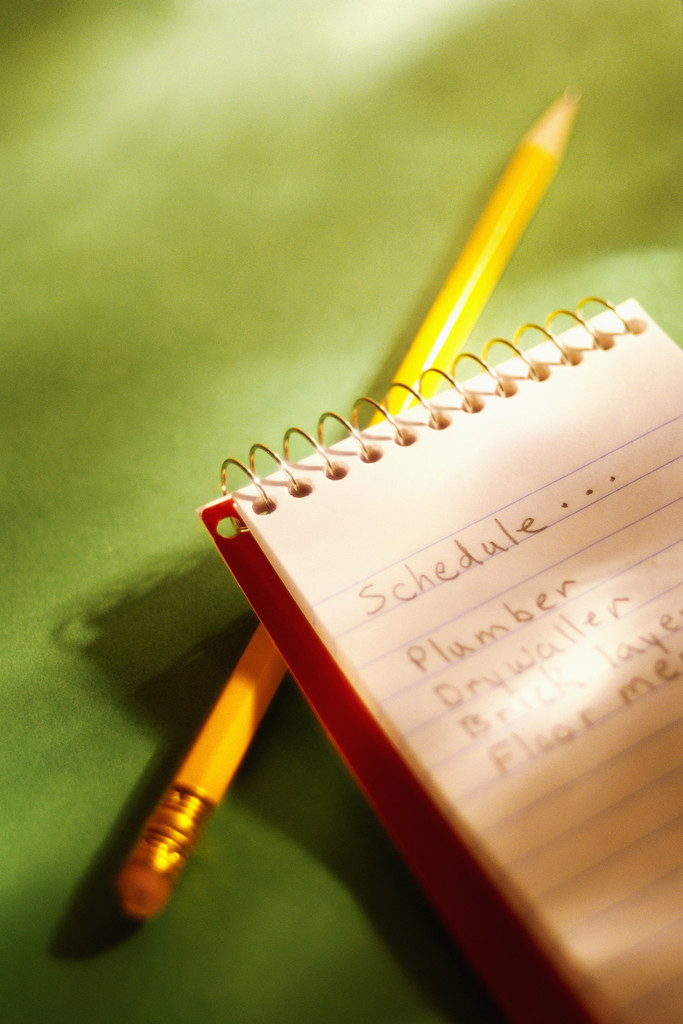 Schedule....
Plumber
Drywaller
Brick laye
Floor me